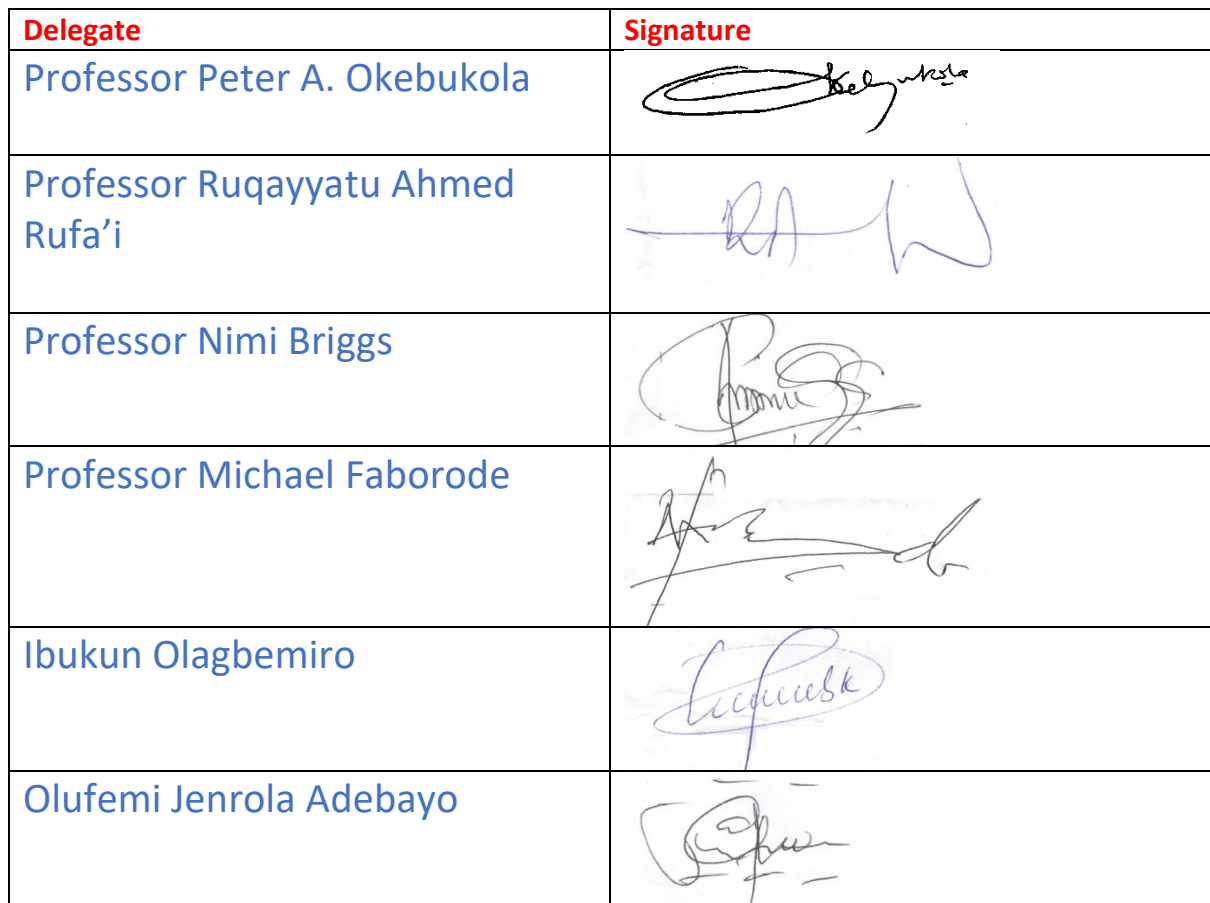 Delegate Signature
Professor Peter A. Okebukola
Professor Ruqayyatu Ahmed
Rufa’i
RA
Professor Nimi Briggs
Professor Michael Faborode
Ibukun Olagbemiro
Olufemi Jenrola Adebayo